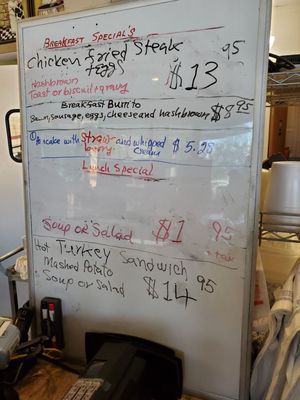 BREAKFAST SPECIAL'S
Chicken Fried Steak 95
+eggs $13
Hashbrown
Toast or biscuit+gravy
Breakfast Burrito
sausage, eggs, cheese and hashbrown $8 95
① with Straw- and whipped
berry cream $ 5.25
Lunch Special
Soup or Salad $1 95
+tax
Hot Turkey Sandwich
Mashed Potato 95
Soup or Salad $14